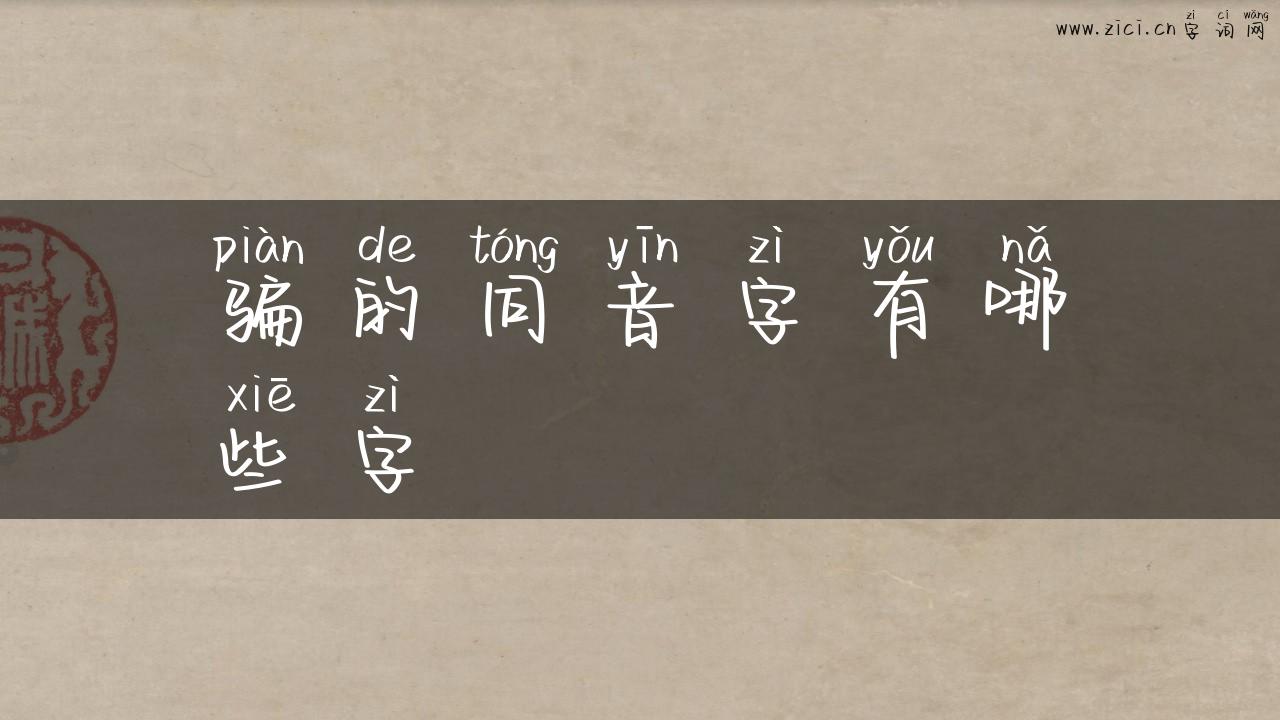 zì cí wǎng
www.zici.cn 字词网
piàn de tóng yīn zì yǒu nǎ
骗的同音字有哪
xiē zì
些字